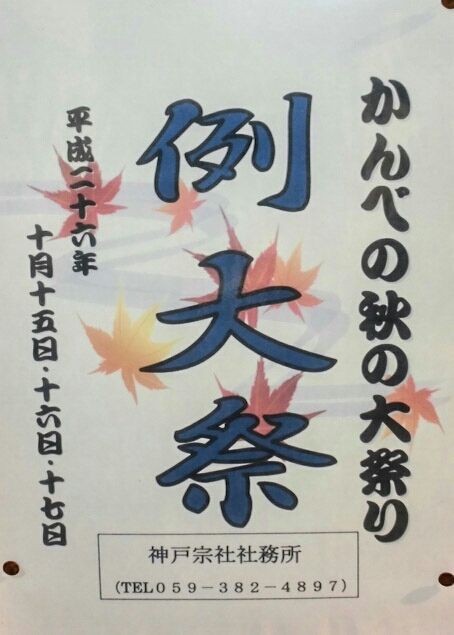 かんべの秋の大祭り
例大祭
平成二十六年
十月十五日・十六日・十七日
神戸宗社社務所
(TEL059－382－4897)